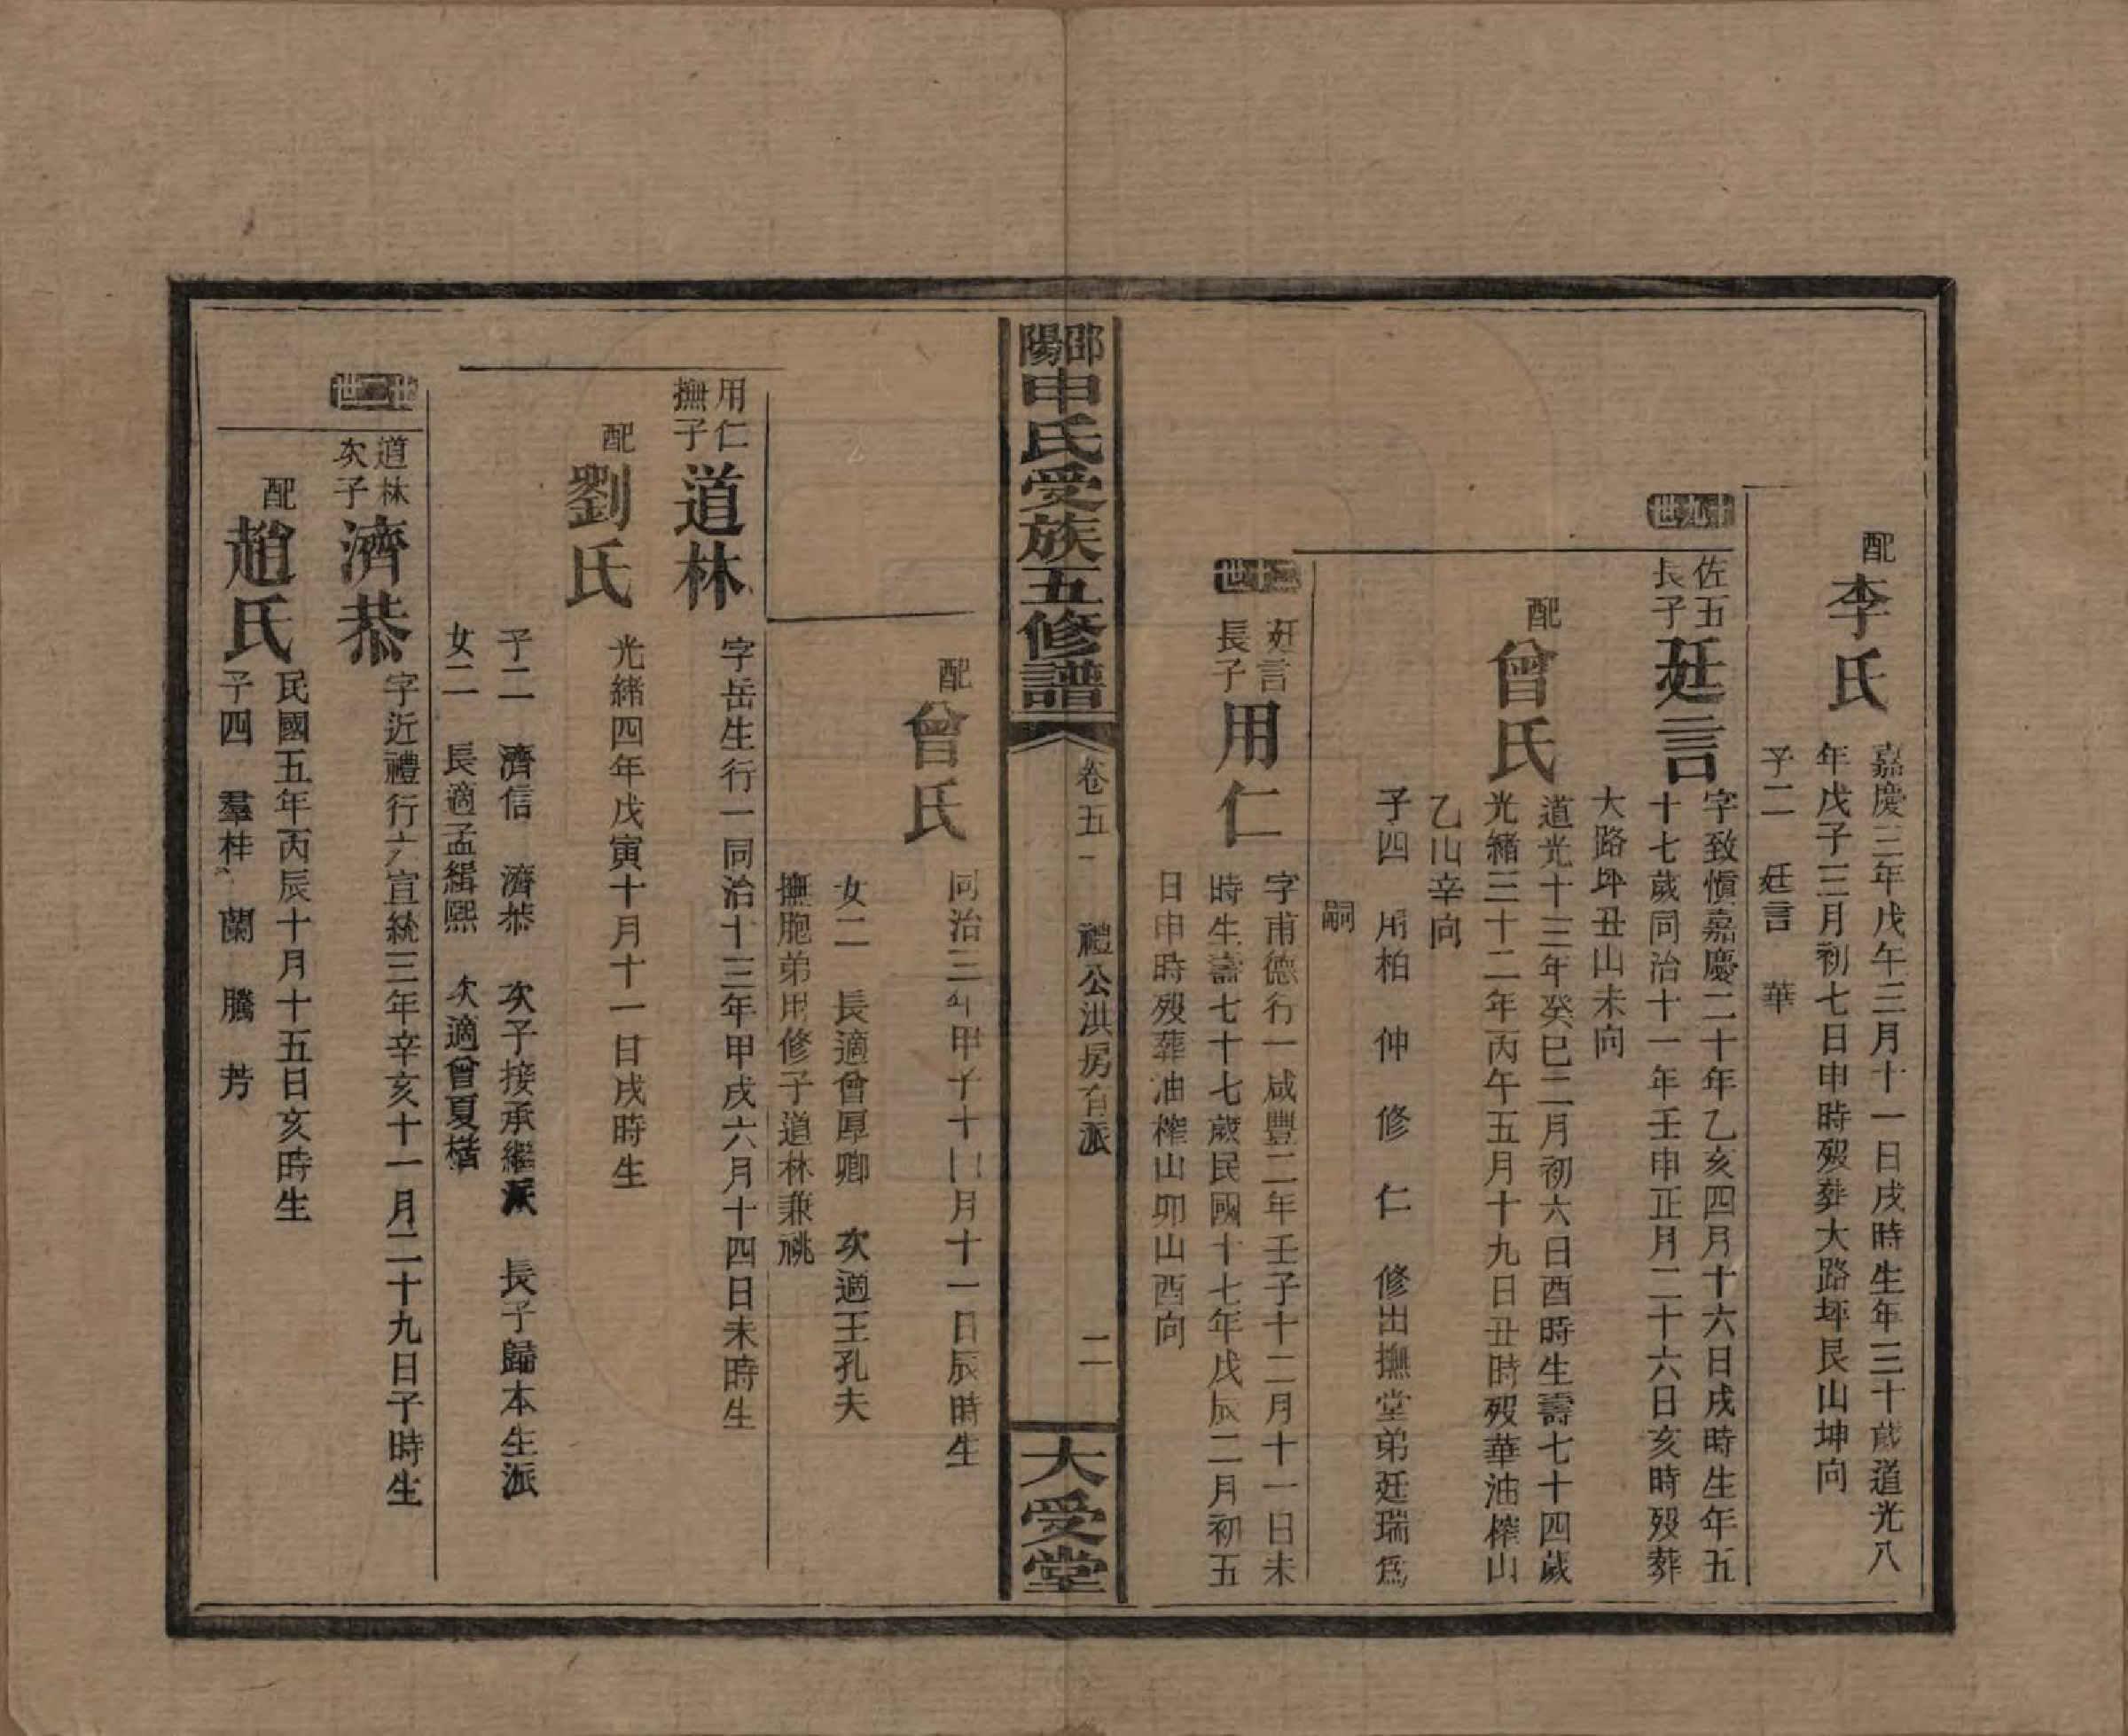 配李氏
嘉慶三年戊午三月十一日戌時生年三十歲道光八
年戊子三月初七日申時歿葬大路坪艮山坤向
子二 廷言 華
十九世
佐五長子廷言
字致慎嘉慶二十年乙亥四月十六日戌時生年五
十七歲同治十一年壬申正月二十六日亥時歿葬
大路坪丑山未向
配曾氏
道光十三年癸巳二月初六日酉時生壽七十四歲
光緒三十二年丙午五月十九日丑時歿華油榨山
乙山辛向
子四 用柏 仲 修 仁 修出撫堂弟廷瑞爲
嗣
二十世
廷言長子用仁
字甫德行一咸豐二年壬子十二月十一日未
時生壽七十七歲民國十七年戊辰二月初五
日申時歿葬油榨山卯山酉向
邵陽申氏受族五修譜
卷五
禮公洪房 派
二
大受堂
配曾氏
同治三年甲子十 月十一日辰時生
女二 長適曾厚卿 次適王孔夫
撫胞弟用修子道林兼祧
用仁撫子道林
字岳生行一同治十三年甲戌六月十四日未時生
配劉氏
光緒四年戊寅十月十一日戌時生
子二 濟信 濟恭 次子接承繼派 長子歸本生派
女二 長適孟緝熙 次適曾夏楷
世
道林次子濟恭
字近禮行六宣統三年辛亥十一月二十九日子時生
配趙氏
民國五年丙辰十月十五日亥時生
子四 羣桂 蘭 騰 芳